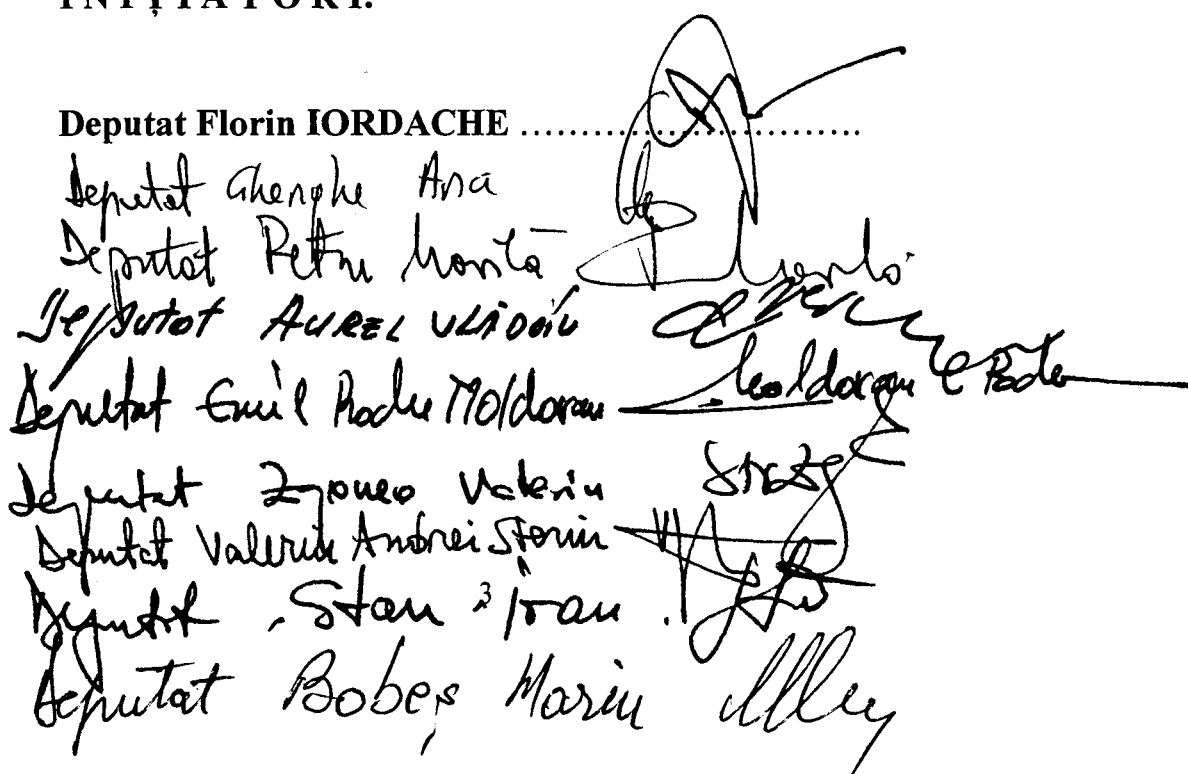 INIȚIATORI:
Deputat Florin IORDACHE ..............................
Deputat Gheorghe Ana
Deputat Petru Movilă
Deputat AUREL VLĂDOIU
Deputat Emil Radu Moldovan Moldovan E Radu
Deputat Zgonea Valeriu
Deputat Valeriu Andrei Steriu
Deputat Stan Ioan
Deputat Bobeș Marin